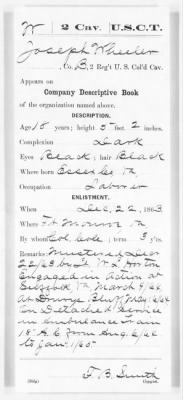 W | 2 Cav. | U.S.C.T.
Joseph Wheeler
, Co. B, 2 Reg't U. S. Col'd Cav.
Appears on
Company Descriptive Book
of the organization named above.
DESCRIPTION.
Age 18 years; height 5 feet 2 inches.
Complexion Dark
Eyes Black; hair Black
Where born Essex Co Va
Occupation Laborer
ENLISTMENT.
When Dec. 22, 1863.
Where Ft Monroe Va
By whom Col. Cole; term 3 y'rs.
Remarks: Mustered Dec
22/63 by Lt
Engaged in Action at
Suffolk Va March 9/64
At Drurys Bluff May /64
On Detached Service
in Ambulance Train
18" A.C. from Aug. /64
to Jan. 1/65.
F. B. Smith
Copyist.